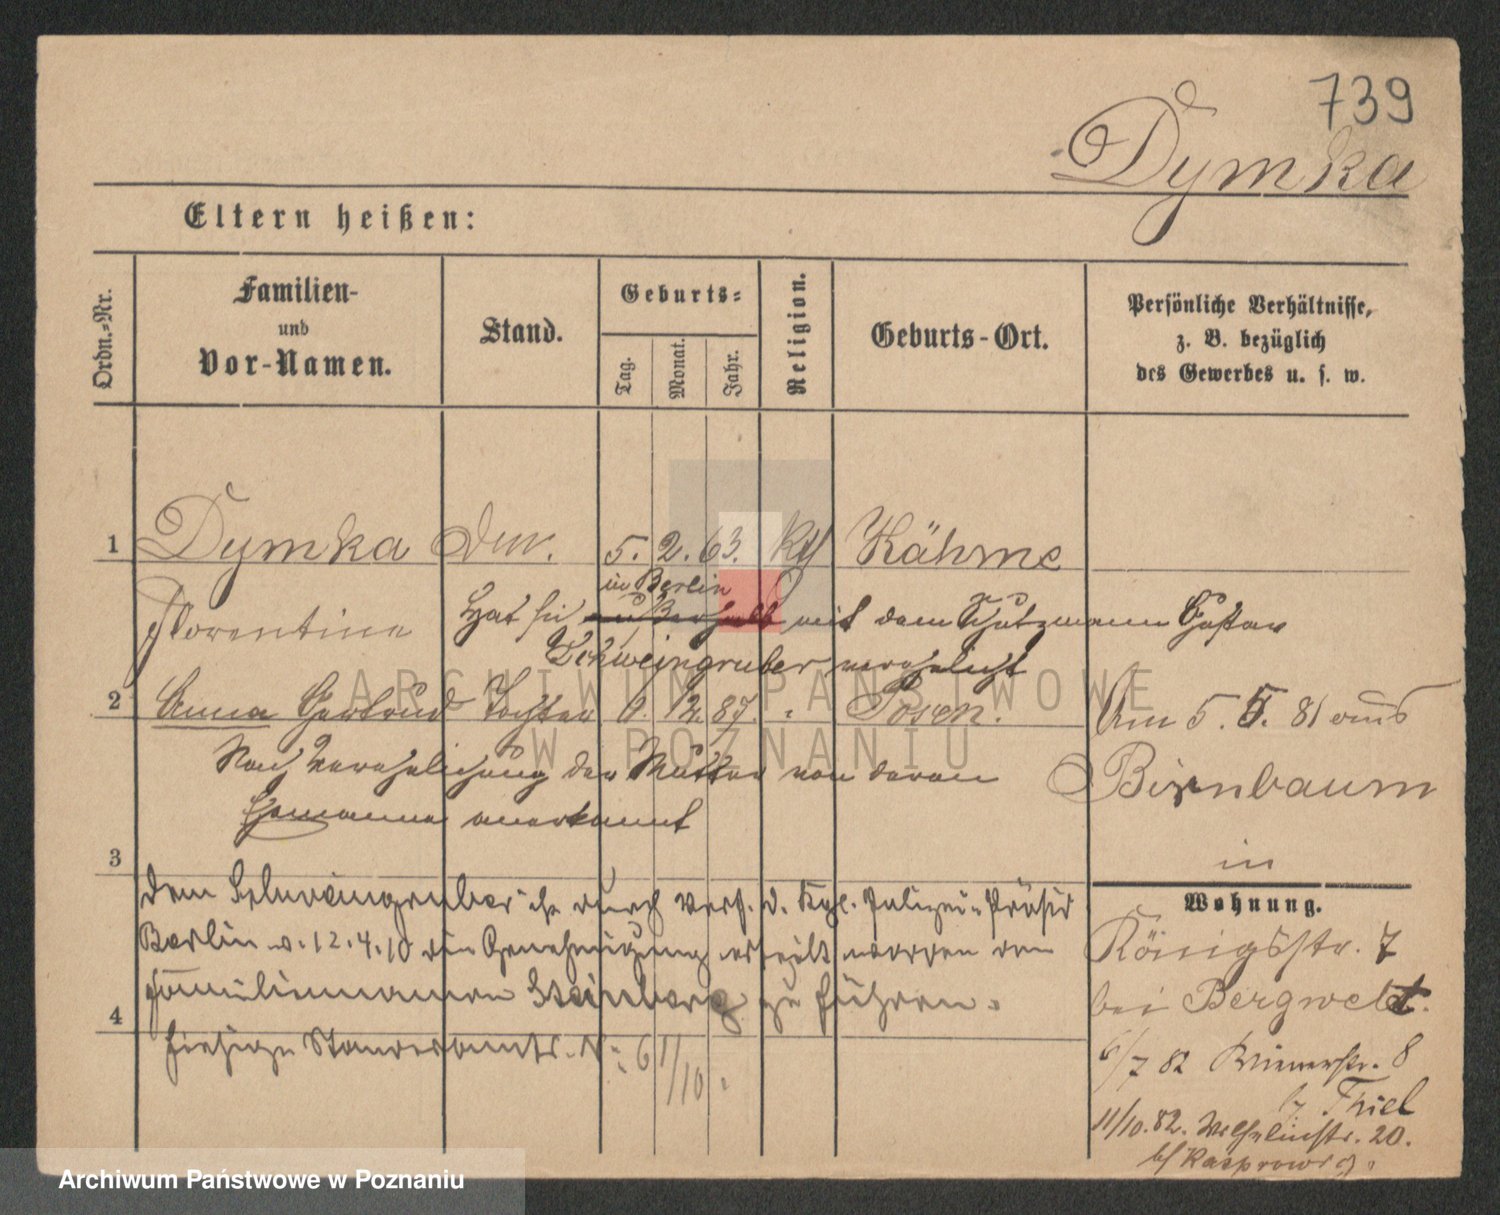 739
Dymka
Eltern heißen:
Ordn.-Nr.
Familien-
und
Vor-Namen.
Stand.
Geburts-
Tag.
Monat.
Jahr.
Religion.
Geburts-Ort.
Persönliche Verhältnisse,
z. B. bezüglich
des Gewerbes u. s. w.
1 Dymka 5. 2. 63. Kähme
in Berlin
Florentine Hat sich mit dem Schutzmann Gustav
Schweingruber verehelicht
2 Anna Gertrud Tochter 12 87. Posen. Am 5. 5. 81 aus
Nach Verehelichung der Mutter von deren Birnbaum
Ehemanne anerkannt
in
3
dem Schweingruber ist durch Verf. d. Kgl. Polizei-Präsid
Berlin v. 12.4.10 die Genehmigung erteilt worden den
Familiennamen Steinberg zu führen.
4
hiesige Standesamts. N: 61/10.
Wohnung.
Königsstr. 7
bei Bergwelt.
6/7 82 8
b. Thiel
11/10. 82. Wilhelmstr. 20.
b/
ARCHIWUM PAŃSTWOWE
W POZNANIU
Archiwum Państwowe w Poznaniu